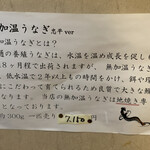 加温うなぎ 忠平 ver
加温うなぎとは？
通の養殖うなぎは、水温を温め成長を促し
18ヶ月程で出荷されますが、無加温うなぎ
、低水温で2年以上もの時間をかけ、餌や
にこだわって育てられるため良質で大きな鰻
なります。当店の無加温うなぎは地焼き専
なっております。
300g 一匹 7,150円